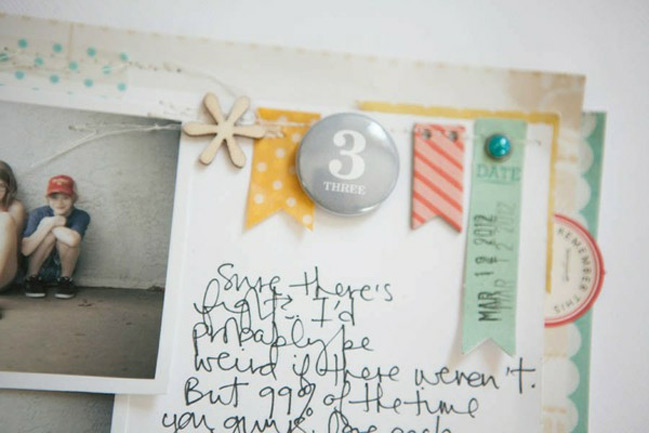 3
THREE
DATE
MAR 12 2012
MAR 12 2012
REMEMBER THIS
Sure there's
fights. I'd
probably be
weird if there weren't.
But 99% of the time
you guys love each